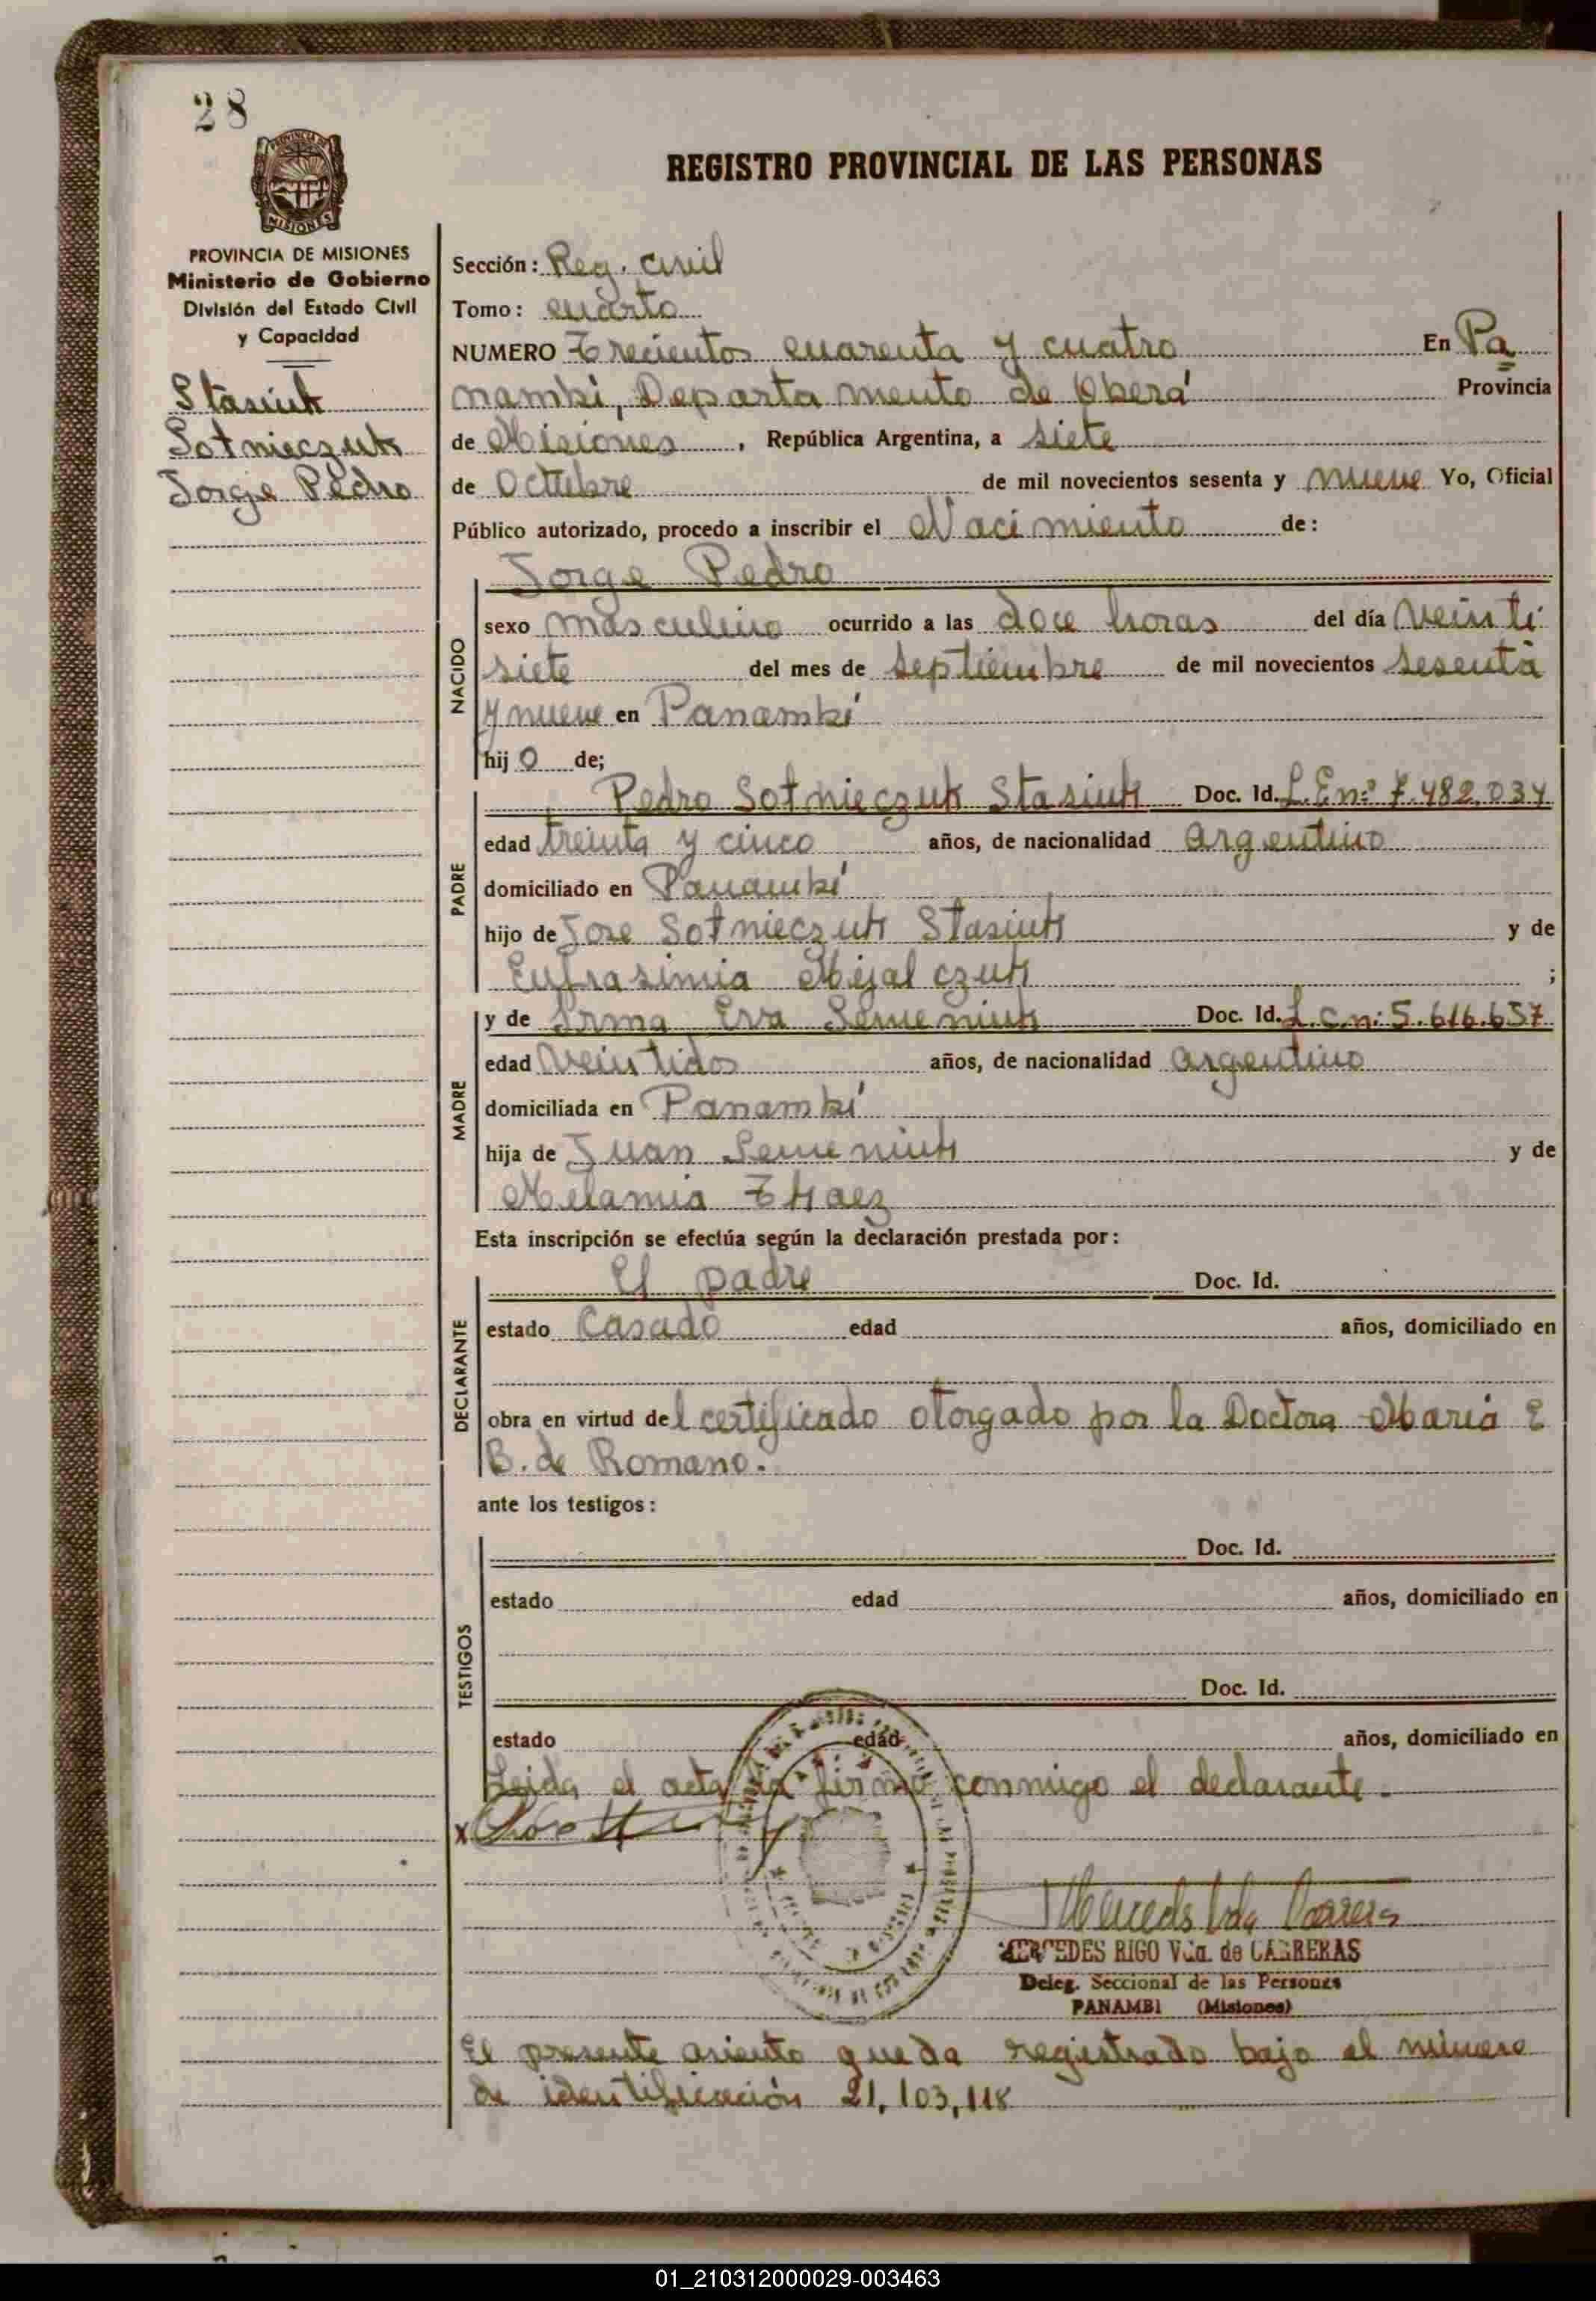 28
PROVINCIA DE
MISIONES
REGISTRO PROVINCIAL DE LAS PERSONAS
PROVINCIA DE MISIONES
Ministerio de Gobierno
División del Estado Civil
y Capacidad
Stasiuk
Sotnieczuk
Jorge Pedro
Sección: Reg. Civil
Tomo: cuarto
NUMERO Trecientos cuarenta y cuatro En Pa
nambi, Departamento de Oberá Provincia
de Misiones, República Argentina, a siete
de Octubre de mil novecientos sesenta y nueve Yo, Oficial
Público autorizado, procedo a inscribir el Nacimiento de:
Jorge Pedro
NACIDO
sexo masculino ocurrido a las doce horas del día veinti
siete del mes de septiembre de mil novecientos sesenta
y nueve en Panambí
hijo de;
PADRE
Pedro Sotnieczuk Stasiuk Doc. Id. L.E.nº 7.482.034
edad treinta y cinco años, de nacionalidad argentino
domiciliado en Panambí
hijo de Jose Sotnieczuk Stasiuk y de
Eufrasimia Mijalczuk ;
MADRE
y de Irma Eva Semeniuk Doc. Id. L.C.n: 5.616.657
edad veintidos años, de nacionalidad argentino
domiciliada en Panambí
hija de Juan Semeniuk y de
Melamia Tkaez
Esta inscripción se efectúa según la declaración prestada por:
DECLARANTE
El padre Doc. Id.
estado Casado edad años, domiciliado en
obra en virtud del certificado otorgado por la Doctora Maria E
B. de Romano.
ante los testigos:
TESTIGOS
Doc. Id.
estado edad años, domiciliado en
Doc. Id.
estado edad años, domiciliado en
Leida el acta la firma conmigo el declarante.
x
MERCEDES RIGO Vda. de CARRERAS
Deleg. Seccional de las Personas
PANAMBI (Misiones)
El presente asiento queda registrado bajo el número
de identificación 21,103,118
01_210312000029-003463